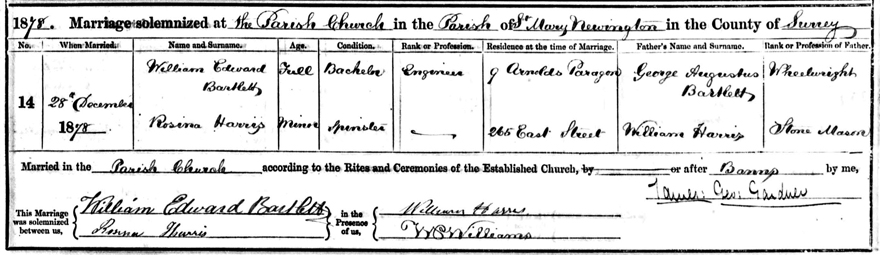 1878. Marriage solemnized at the Parish Church in the Parish of St Mary Newington in the County of Surrey
No. When Married. Name and Surname. Age. Condition. Rank or Profession. Residence at the time of Marriage. Father's Name and Surname. Rank or Profession of Father.
14 28th December 1878
William Edward Bartlett Full Bachelor Engineer 9 Arnolds Paragon George Augustus Bartlett Wheelwright
Rosina Harris Minor Spinster — 265 East Street William Harris Stone Mason
Married in the Parish Church according to the Rites and Ceremonies of the Established Church, by or after Banns by me,
James Geo. Gardner
This Marriage was solemnized between us, { William Edward Bartlett } in the Presence of us, { William Harris
Rosina Harris W Williams